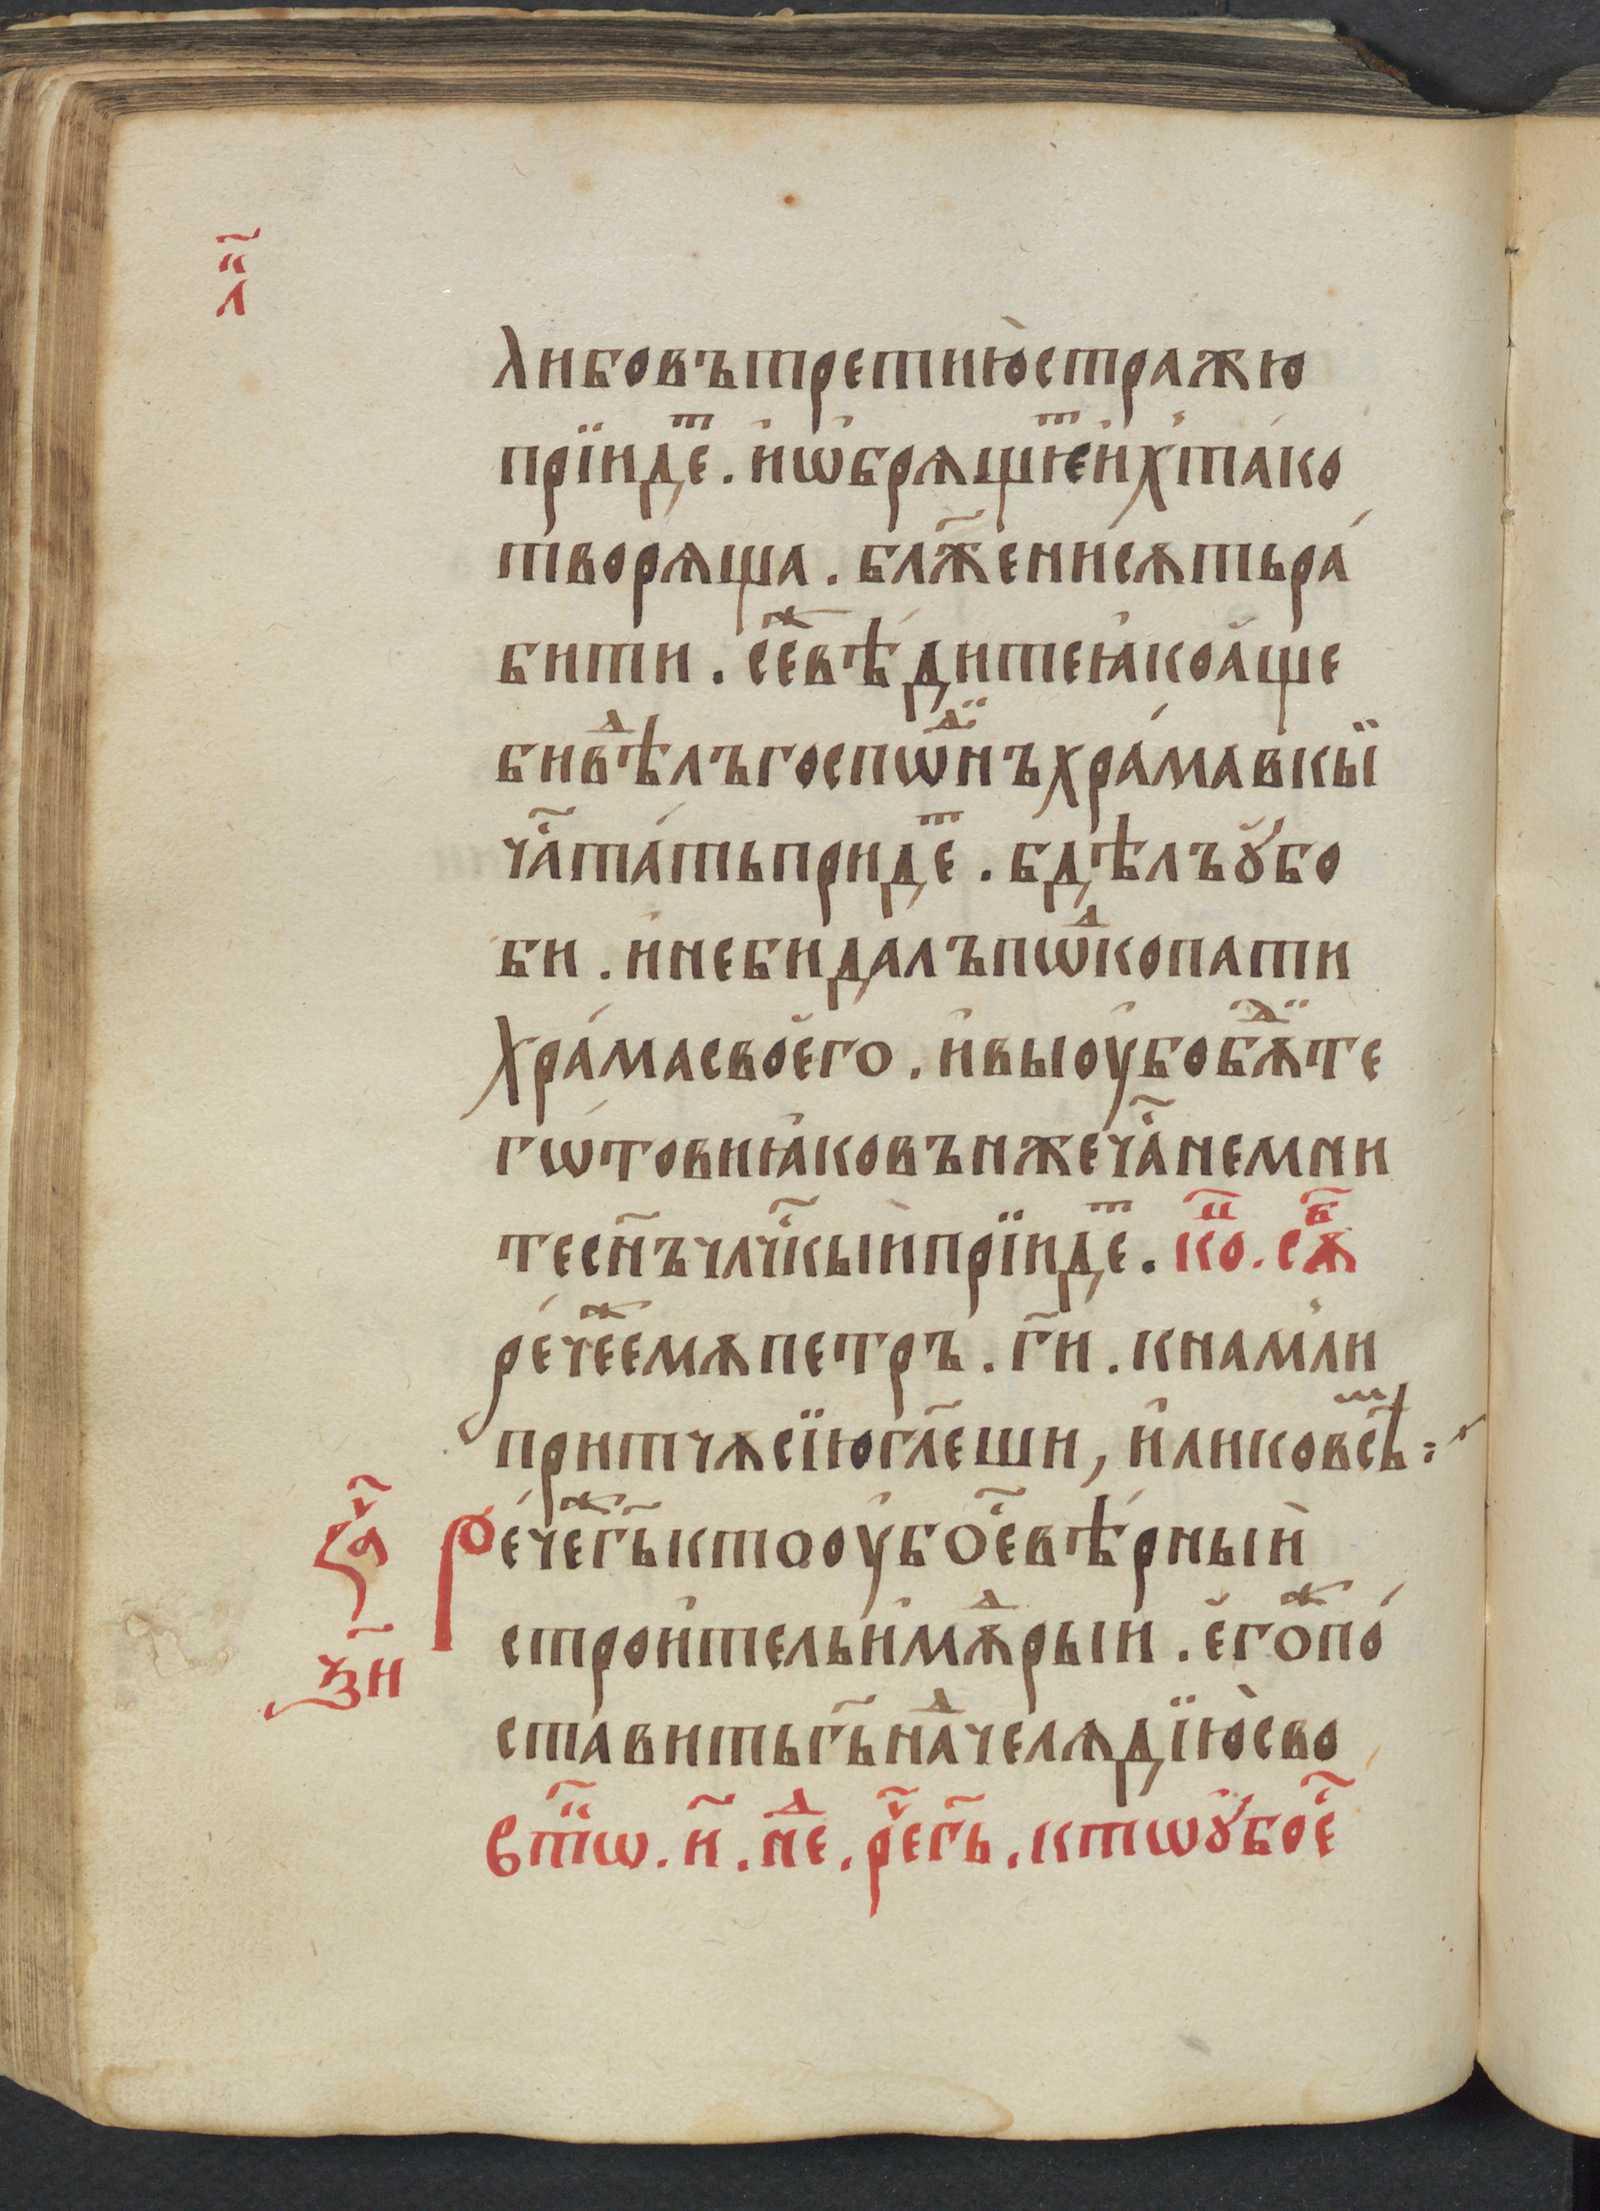 л҃і
либовътретиюстражю
прїидеⷮ. иѡбрящиⷮеихтако
творяща. блж҃енисѫтьра
бити. сежⷤвѣдитеꙗкоаще
бивⷣѣлъгоспѡⷣинъхрамавкӹ
ча҃татьпридеⷮ. бдѣлъꙋбо
би. инебидалъпѡⷣкопати
храмасвоего. ивыоубобѫⷣте
гѡтовиꙗковъньжеча҃немни
тесн҃ъчл҃чкыипрїидеⷮ. коⷩ҇. сѫⷠ
речежеⷤемѫпетръ. г҃и. кнамли
притчѫсїюгл҃еши, иликовсⷨѣ:
Речежⷤег҃ьктооубое҃вѣрныи
строительимѫⷣрыи. егожⷤепо
ставитьг҃ьнаⷣчелядїюсво
втⷪ҇ѡ. н҃. неⷣ. реⷱ҇г҃ь. ктѡꙋбое҃